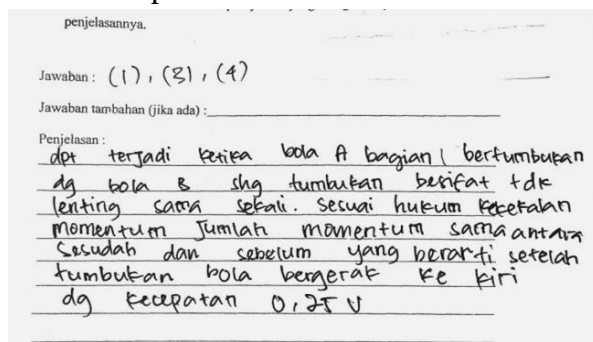 penjelasannya.
Jawaban : (1), (3), (4)
Jawaban tambahan (jika ada) :
Penjelasan :
dpt terjadi ketika bola A bagian 1 bertumbukan
dg bola B shg tumbukan bersifat tdk
lenting sama sekali. Sesuai hukum kekekalan
momentum Jumlah momentum sama antara
Sesudah dan sebelum yang berarti setelah
tumbukan bola bergerak ke kiri
dg kecepatan 0,25 V